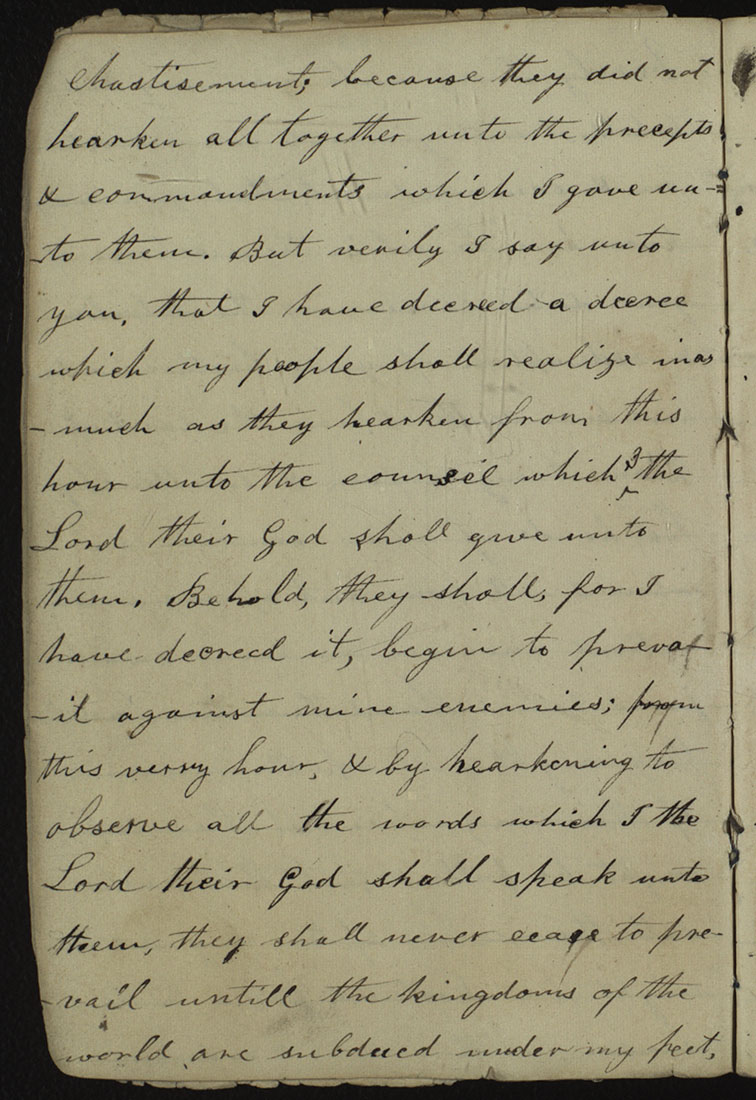 chastisement; because they did not
hearken all together unto the precepts
& commandments which I gave un-
-to them. But verily I say unto
you, that I have decreed a decree
which my people shall realize inas
-much as they hearken from this
hour unto the counsel which 3 the
Lord their God shall give unto
them. Behold, they shall, for I
have decreed it, begin to preva-
-il against mine enemies; from
this verry hour, & by hearkening to
observe all the words which I the
Lord their God shall speak unto
them, they shall never cease to pre-
-vail untill the kingdoms of the
world are subdued under my feet,